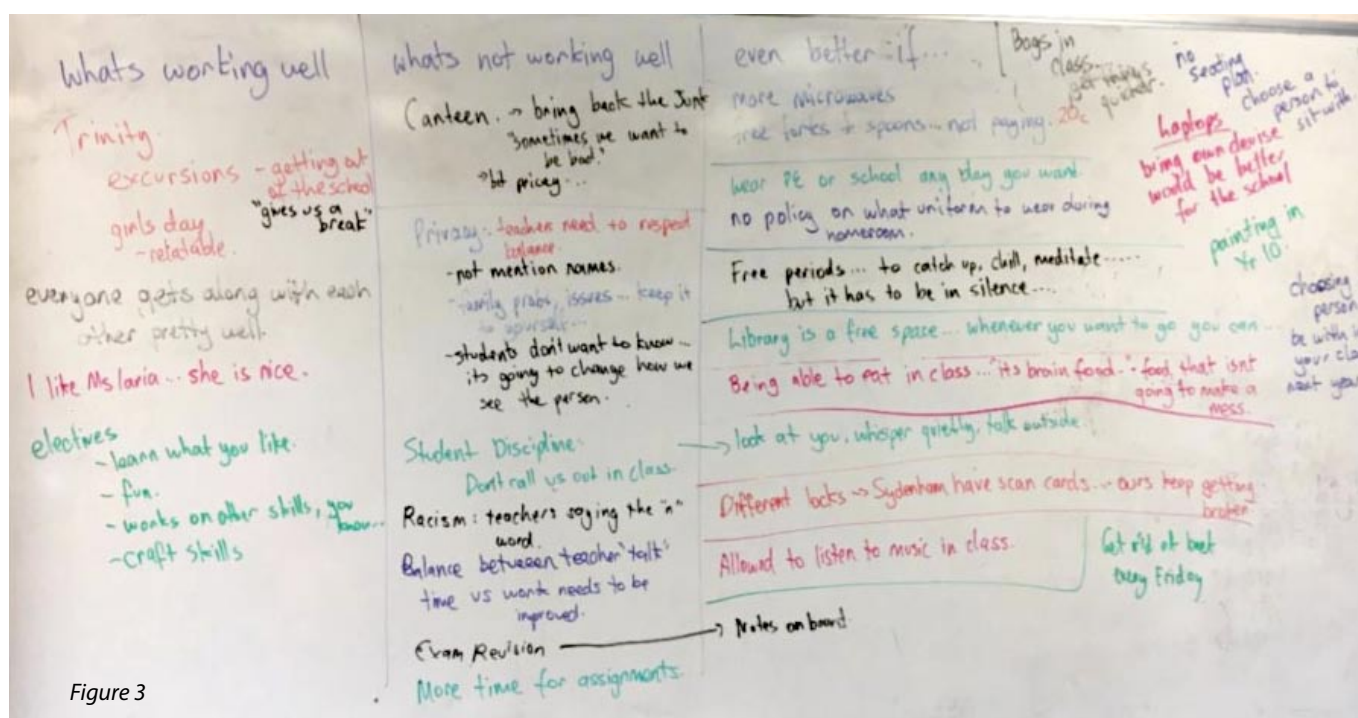 whats working well
Trinity.
excursions - getting out
of the school
"gives us a
break"
girls day
- relatable.
everyone gets along with each
other pretty well.
I like Ms Iaria... she is nice.
electives
- learn what you like.
- fun.
- works on other skills, you
know...
- craft skills
whats not working well
Canteen. → bring back the Junk
"Sometimes we want to
be bad."
bit pricey...
Privacy: teachers need to respect
balance.
- not mention names.
- family probs, issues... keep it
to yourself...
- students don't want to know...
its going to change how we
see the person.
Student Discipline.
Dont call us out in class.
Racism: teachers saying the "n"
word.
Balance between teacher "talk"
time vs work needs to be
improved.
Exam Revision
More time for assignments.
even better if...
more microwaves
free forks & spoons... not paying. 20c
wear PE or school any day you want.
no policy on what uniform to wear during
homeroom.
Free periods... to catch up, chill, meditate......
but it has to be in silence....
Library is a free space... whenever you want to go you can...
Being able to eat in class..."its brain food." - food, that isnt
going to make a
mess.
→ look at you, whisper quietly, talk outside.
Different locks → Sydenham have scan cards... ours keep getting
broken
Allowed to listen to music in class.
→ Notes on board.
Get rid of
every Friday
Bags in
class...
get things
quicker.
no
seating
plan.
choose a
person to
sit with.
Laptops
bring own devise
would be better
for the school
painting in
Yr 10.
choosing
person
be with
your cla
next yea
Figure 3